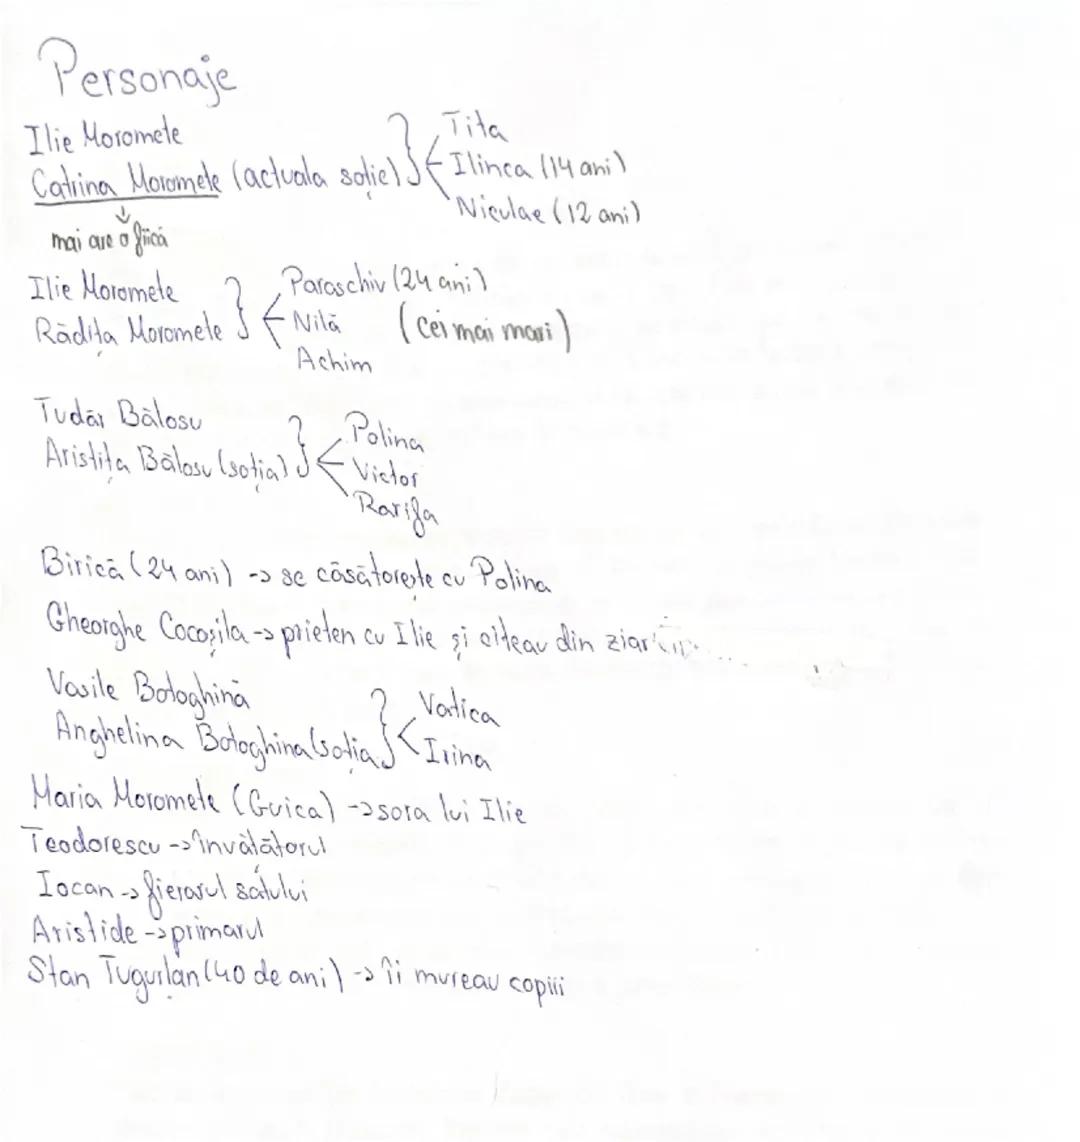 Personaje
Ilie Moromete
Catrina Moromete (actuala soție) } Tita
Ilinca (14 ani)
Niculae (12 ani)
mai are o fiică
Ilie Moromete
Rădița Moromete } Paraschiv (24 ani)
Nilă (cei mai mari)
Achim
Tudăr Bălosu
Aristița Bălosu (soția) } Polina
Victor
Rafira
Birică (24 ani) -> se căsătorește cu Polina
Gheorghe Cocoșila -> prieten cu Ilie și citeau din ziar
Vasile Botoghină
Anghelina Botoghina (soția) } Vatica
Irina
Maria Moromete (Guica) -> sora lui Ilie
Teodorescu -> învățătorul
Iocan -> fierarul satului
Aristide -> primarul
Stan Țugurlan (40 de ani) -> îi mureau copiii